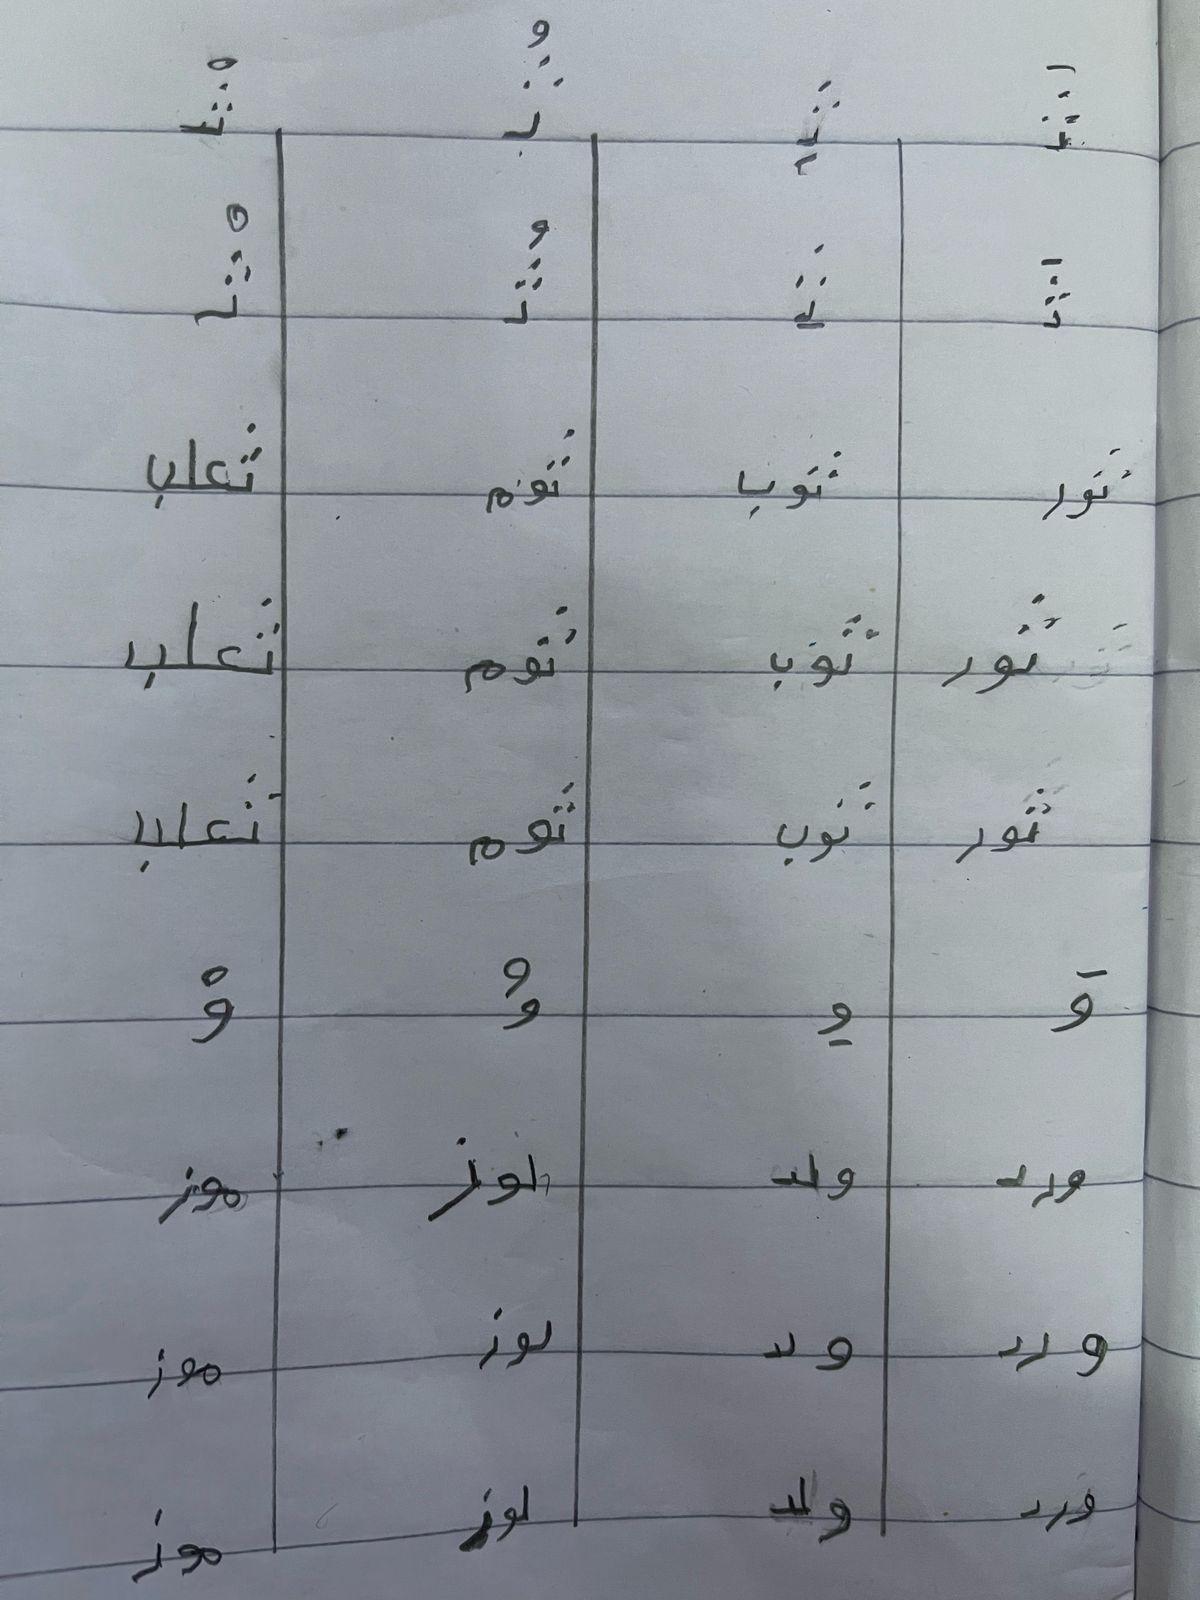 ثَ ثِ ثُ ثْ
ثَ ثِ ثُ ثْ
ثور ثوب ثوم ثعلب
ثور ثوب ثوم ثعلب
ثور ثوب ثوم ثعلب
وَ وِ وُ وْ
ورد ولد لوز موز
ورد ولد لوز موز
ورد ولد لوز موز